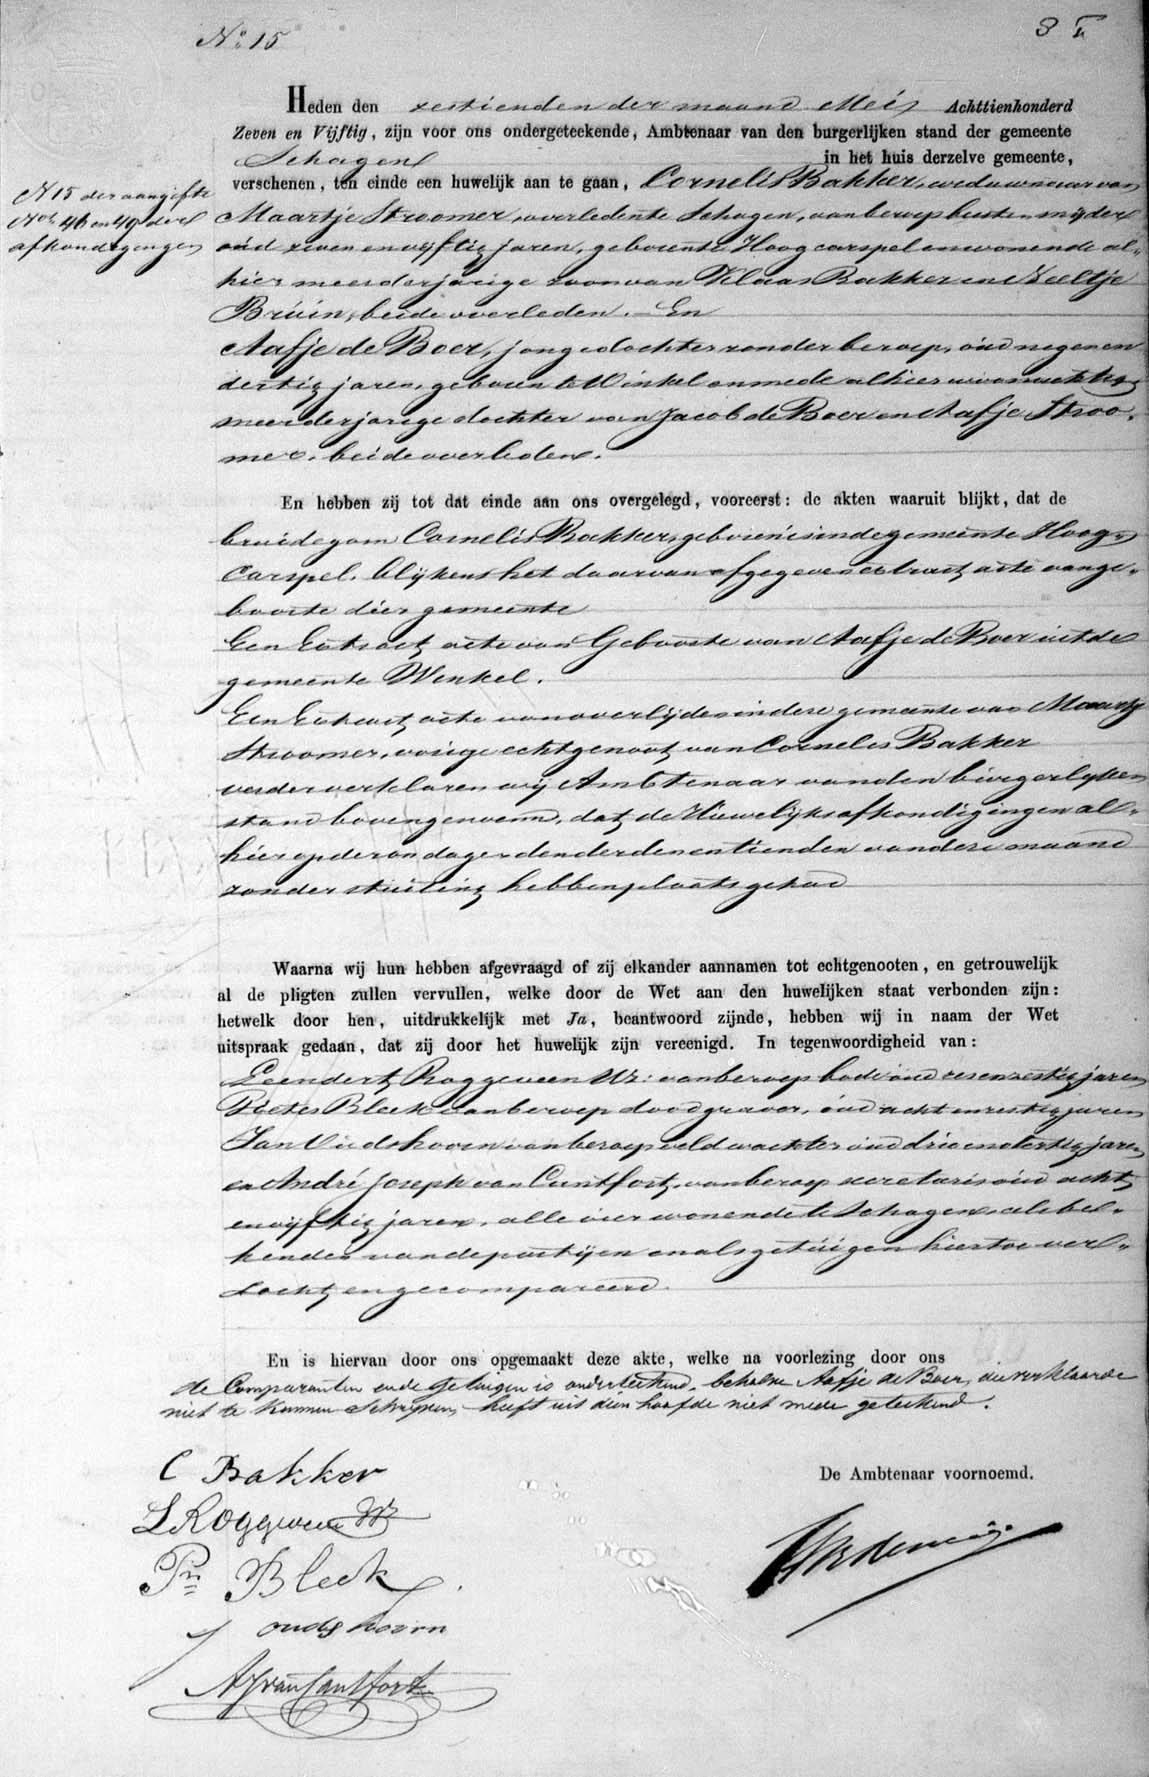 No. 15
Heden den zestienden der maand Mei Achttienhonderd
Zeven en Vijftig, zijn voor ons ondergeteekende, Ambtenaar van den burgerlijken stand der gemeente
Schagen in het huis derzelve gemeente,
N 15 der aangifte
Nos 46 en 49 der
afkondigingen
verschenen, ten einde een huwelijk aan te gaan, Cornelis Bakker, weduwnaar van
Maartje Stroomer, overleden te Schagen, van beroep
oud zeven en vijftig jaren, geboren te Hoogcarspel en wonende al-
hier meerderjarige zoon van Klaas Bakker en Neeltje
Bruin, beide overleden. En
Aafje de Boer, jongedochter zonder beroep, oud negen en
dertig jaren, geboren te Winkel en mede alhier woonachtig
meerderjarige dochter van Jacob de Boer en Aafje Stroo-
mer, beide overleden.
En hebben zij tot dat einde aan ons overgelegd, vooreerst: de akten waaruit blijkt, dat de
bruidegom Cornelis Bakker, geboren is in de gemeente Hoog-
carspel, blijkens het daarvan afgegeven extract acte van ge-
boorte dier gemeente
Een Extract acte van Geboorte van Aafje de Boer uit de
gemeente Winkel.
Een Extract acte van overlijden in deze gemeente van Maartje
Stroomer, vorige echtgenoot van Cornelis Bakker
verder verklaren wij Ambtenaar van den burgerlijken
stand bovengenoemd, dat de Huwelijksafkondigingen al-
hier op de zondagen den derden en tienden van deze maand
zonder stuiting hebben plaats gehad
Waarna wij hun hebben afgevraagd of zij elkander aannamen tot echtgenooten, en getrouwelijk
al de pligten zullen vervullen, welke door de Wet aan den huwelijken staat verbonden zijn:
hetwelk door hen, uitdrukkelijk met Ja, beantwoord zijnde, hebben wij in naam der Wet
uitspraak gedaan, dat zij door het huwelijk zijn vereenigd. In tegenwoordigheid van:
Leendert Roggeveen Wz: van beroep bode oud zes en zestig jaren
Pieter Bleek van beroep doodgraver, oud acht en zestig jaren
Jan Oudshoorn van beroep veldwachter oud drie en dertig jaren
en André Joseph van Cantfort, van beroep secretaris oud acht
en vijftig jaren, alle vier wonende te Schagen als be-
kenden van de partijen en als getuigen hiertoe ver-
zocht en gecompareerd.
En is hiervan door ons opgemaakt deze akte, welke na voorlezing door ons
de Comparanten en de Getuigen is onderteekend, behalve Aafje de Boer, die verklaarde
niet te kunnen schrijven, heeft uit dien hoofde niet mede geteekend.
C Bakker
De Ambtenaar voornoemd.
L Roggeveen Wz
Pr Bleek
J oudshoorn
A J van Cantfort